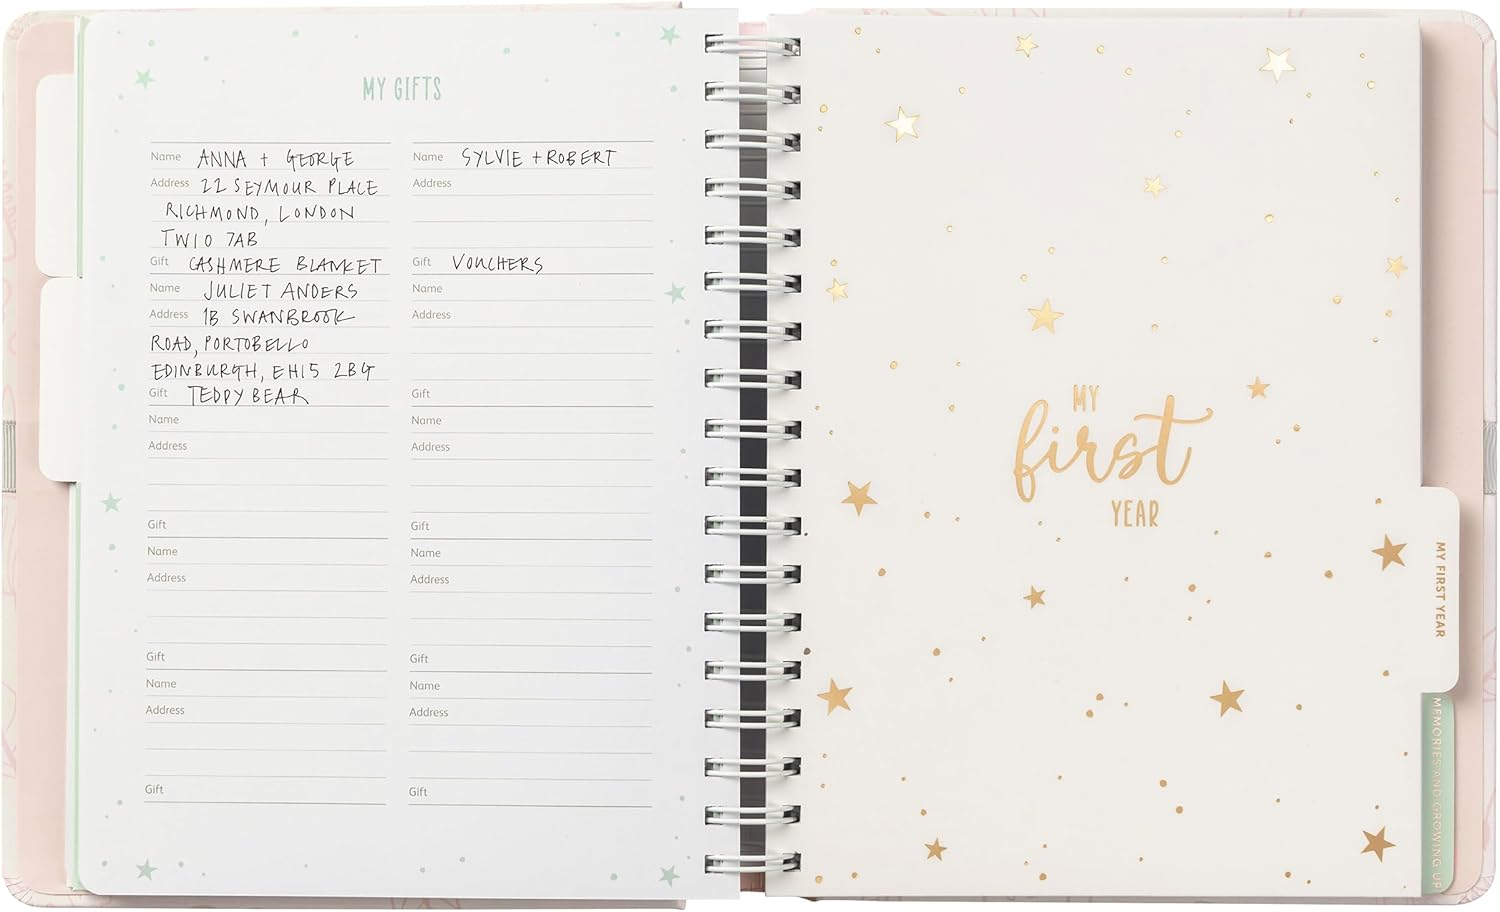 MY GIFTS
Name ANNA + GEORGE
Address 22 SEYMOUR PLACE
RICHMOND, LONDON
TW10 7AB
Gift CASHMERE BLANKET
Name JULIET ANDERS
Address 1B SWANBROOK
ROAD, PORTOBELLO
EDINBURGH, EH15 2BG
Gift TEDDY BEAR
Name
Address
Gift
Name
Address
Gift
Name
Address
Gift
Name SYLVIE + ROBERT
Address
Gift VOUCHERS
Name
Address
Gift
Name
Address
Gift
Name
Address
Gift
Name
Address
Gift
MY
first
YEAR
MY FIRST YEAR
MEMORIES AND GROWING UP